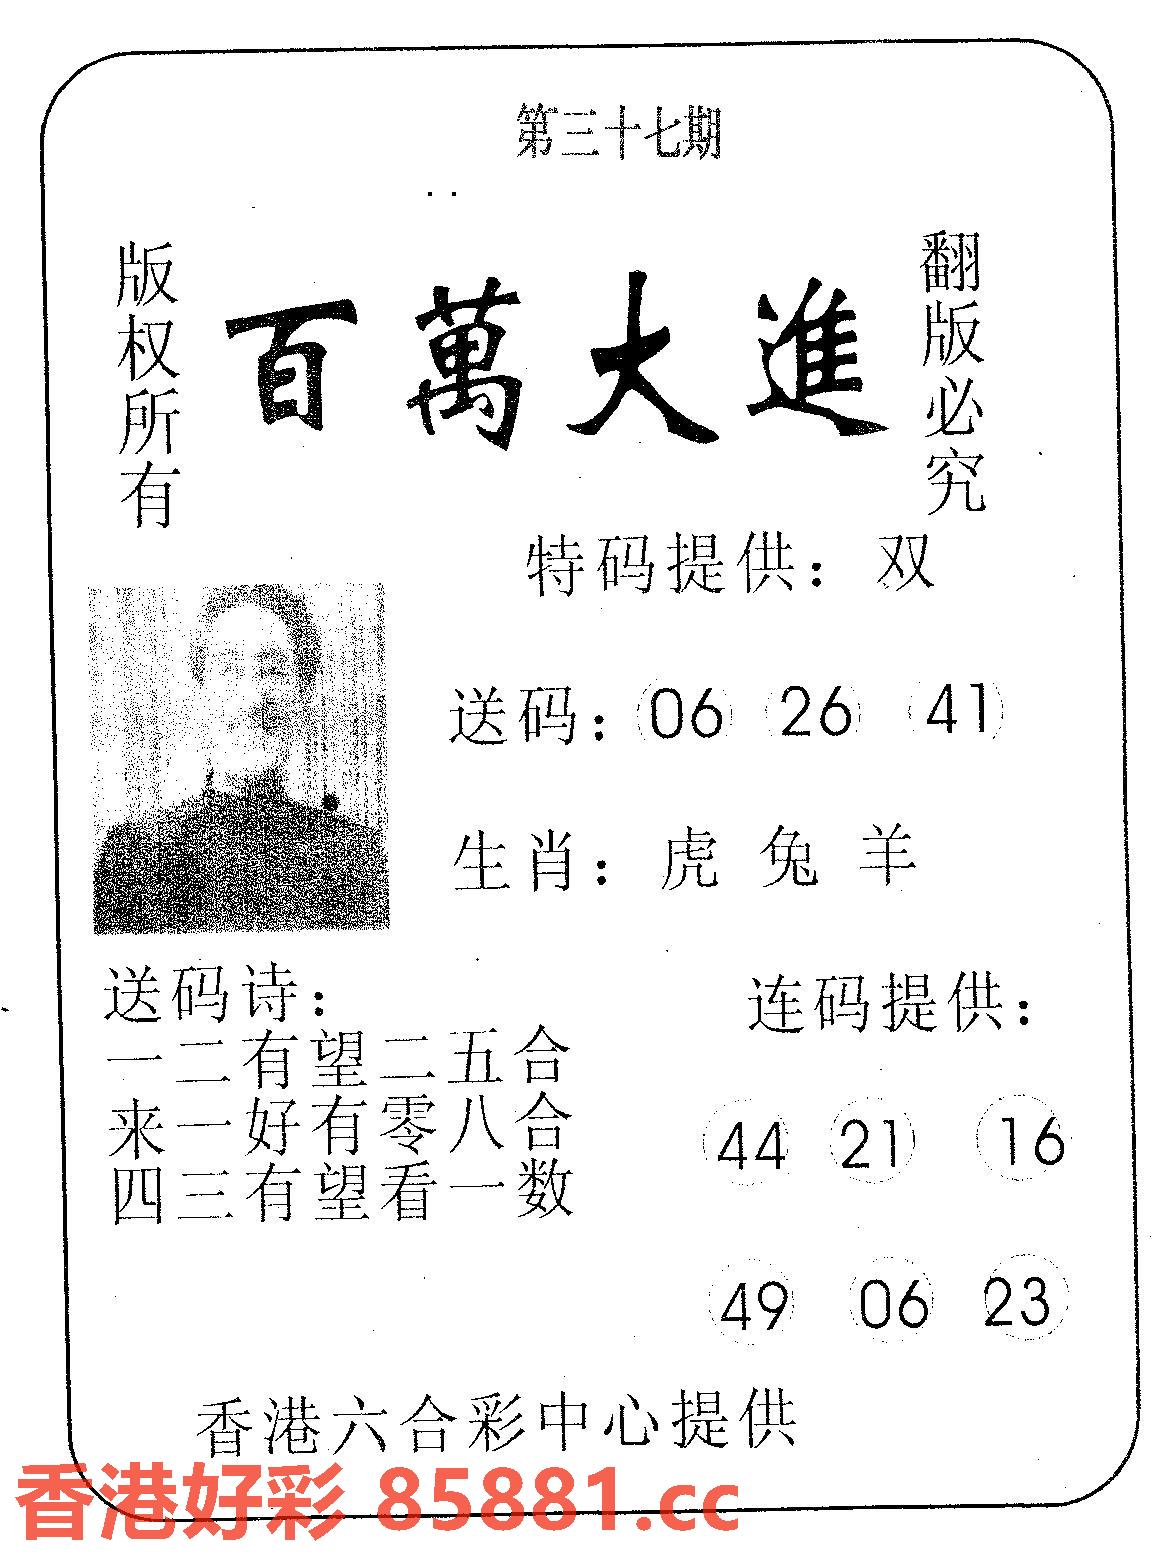 第三十七期
版权所有
百萬大進
翻版必究
特码提供：双
送码：06 26 41
生肖：虎 兔 羊
送码诗：
一二有望二五合
来一好有零八合
四三有望看一数
连码提供：
44 21 16
49 06 23
香港六合彩中心提供
香港好彩 85881.cc